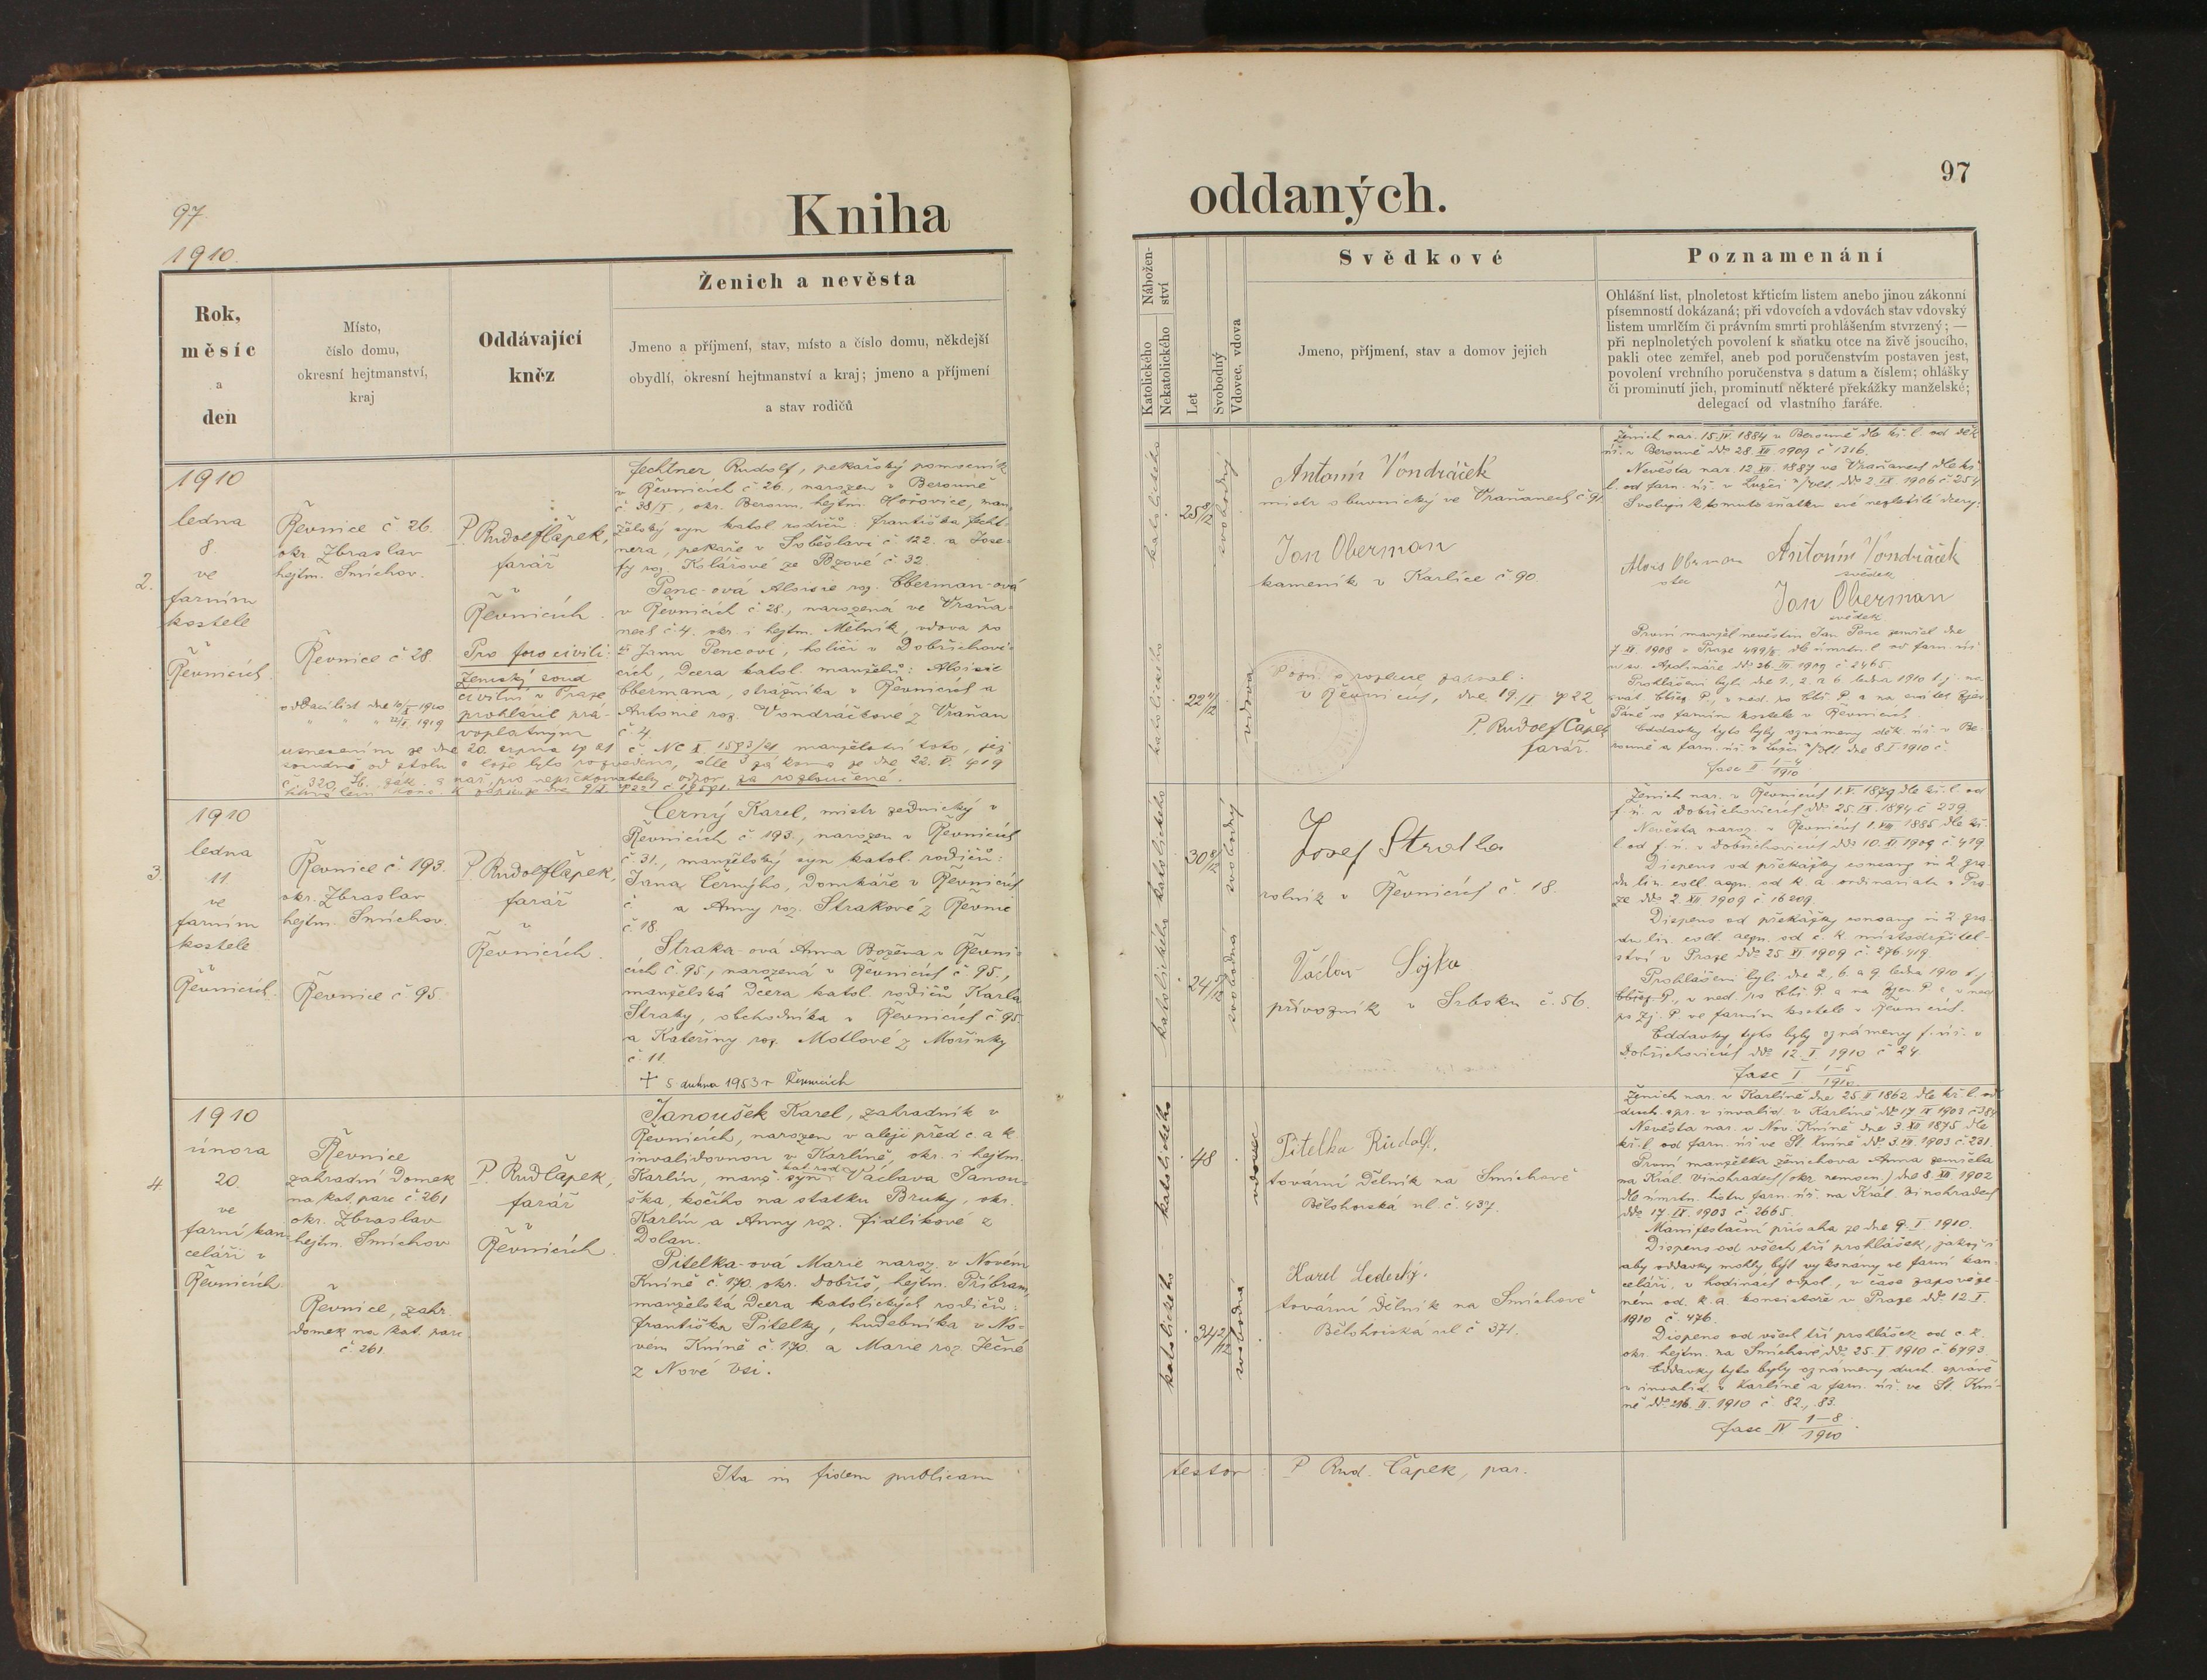 97
1910.
Kniha
Rok,
měsíc
a
den
Místo,
číslo domu,
okresní hejtmanství,
kraj
Oddávající
kněz
Ženich a nevěsta
Jmeno a příjmení, stav, místo a číslo domu, někdejší
obydlí, okresní hejtmanství a kraj; jmeno a příjmení
a stav rodičů
2.
1910
ledna
8.
ve
farním
kostele
v
Řevnicích.
Řevnice č 26.
okr. Zbraslav
hejtm. Smíchov.
Řevnice č. 28
P. Rudolf Čapek,
farář
v
Řevnicích.
Pro foro civili:
Zemský soud
civilní v Praze
prohlásil prá-
voplatným
Fechtner Rudolf, pekařský pomocník
v Řevnicích č 26., narozen v Berouně
č 38/I, okr. Beroun, hejtm. Hořovice, man-
želský syn katol. rodičů: Františka Fecht-
nera, pekaře v Soběslavi č 122. a Jose-
fy roz. Kolářové ze Bzové č 32.
Penc-ová Aloisie roz. Oberman-ová
v Řevnicích č 28., narozená ve Vraňa-
nech č 4. okr. i hejtm. Mělník, vdova po
Janu Pencovi, holiči v Dobřichovi-
cích, dcera katol. manželů: Aloisie
Obermana, strážníka v Řevnicích a
Antonie roz. Vondráčkové z Vraňan
č. 4.
usnesením ze dne 20. srpna 1921 č. Nc X 1593/21 manželství toto, jež
soudně od stolu a lože bylo rozvedeno, dle zákona ze dne 22. V. 1919
č. 320 Sb. zák. a nař. pro nepřekonatelný odpor za rozloučené.
3.
1910
ledna
11
ve
farním
kostele
v
Řevnicích.
Řevnice č. 193.
okr. Zbraslav
hejtm. Smíchov.
Řevnice č 95.
P. Rudolf Čapek,
farář
v
Řevnicích.
Černý Karel, mistr zednický v
Řevnicích č. 193., narozen v Řevnicích
č. 31., manželský syn katol. rodičů:
Jána Černýho, domkáře v Řevnicích
č. a Anny roz. Strakové z Řevnic
č. 18.
Straka-ová Anna Božena v Řevni-
cích č. 95, narozená v Řevnicích č 95.,
manželská dcera katol. rodičů Karla
Straky, obchodníka v Řevnicích č. 95.
a Kateřiny roz. Motlové z Mořinky
č. 11.
† 5 dubna 1953 v Řevnicích
4.
1910
února
20.
ve
farní kan-
celáři v
Řevnicích.
Řevnice
zahradní domek
na kat. parc č. 261
okr. Zbraslav
hejtm. Smíchov
Řevnice, zahr.
domek na kat. parc.
č. 261.
P. Rud Čapek,
farář
v
Řevnicích.
Janoušek Karel, zahradník v
Řevnicích, narozen v aleji před c. a k.
invalidovnou v Karlíně, okr. i hejtm.
Karlín, manž. syn kat. rod. Václava Janou-
ška, kočího na statku Bruky, okr.
Karlín a Anny roz. Fidlikové z
Dolan.
Pitelka-ová Marie naroz. v Novém
Kníně č. 170. okr. Dobříš, hejtm. Příbram,
manželská dcera katolických rodičů:
Františka Pitelky, hudebníka v No-
vém Kníně č. 170. a Marie roz. Ječné
z Nové Vsi.
Ita in fidem publicam
oddaných.
97
Nábožen-
ství
Katolického
Nekatolického
Let
Svobodný
Vdovec, vdova
Svědkové
Jmeno, příjmení, stav a domov jejich
Poznamenání
Ohlášní list, plnoletost křticím listem anebo jinou zákonní
písemností dokázaná; při vdovcích a vdovách stav vdovský
listem umrlčím či právním smrti prohlášením stvrzený; —
při neplnoletých povolení k sňatku otce na živě jsoucího,
pakli otec zemřel, aneb pod poručenstvím postaven jest,
povolení vrchního poručenstva s datum a číslem; ohlášky
či prominutí jich, prominutí některé překážky manželské;
delegací od vlastního faráře.
katolického
25 8/12
svobodný
katolického
22
vdova
Antonín Vondráček
mistr obuvnický ve Vraňanech č. 91
Jan Oberman
kameník v Karlíce č 90.
Pozn. o rozluce zapsal:
v Řevnicích, dne 19/I 1922
P. Rudolf Čapek
farář.
Ženich nar. 15. IV. 1884 v Berouně dle kř. l. od děk.
úř. v Berouně dd. 28 XII 1909 č 1316.
Nevěsta nar. 12 XII. 1887 ve Vraňanech dle kř.
l. od farn. úř. v Lužci n/Vlt. dd. 2. IX. 1906 č 254
Svoluji k tomuto sňatku své nezletilé dcery:
Alois Oberman
otec
Antonín Vondráček
svědek
Jan Oberman
svědek
První manžel nevěstin Jan Penc zemřel dne
7. XI. 1908 v Praze 499/II. dle úmrtn. l. od farn. úř.
u sv. Apolináře dd. 26. 1909 č 2465.
Prohlášeni byli dne 1., 2. a 6. ledna 1910 t. j. na
svat. Obřez. P., v ned. po Obř. P. a na svátek Zjev.
Páně ve farním kostele v Řevnicích.
Oddavky tyto byly oznámeny děk. úř. v Be-
rouně a farn. úř. v Lužci n/Vlt. dne 8. I. 1910 č.
fasc II 1-4/1910
katolického
30
svobodný
katolického
24
svobodná
Josef Straka
rolník v Řevnicích č. 18.
Václav Sojka
převozník v Srbsku č. 56.
Ženich nar. v Řevnicích 1. V. 1879 dle kř. l. od
f. ú. v Dobřichovicích dd. 25. IX. 1894 č 239.
Nevěsta naroz. v Řevnicích 1. VIII 1885 dle kř.
l. od f. ú. v Dobřichovicích dd. 10. XI 1909 č 419.
Dispens od překážky consang in 2. gra-
du lin. coll. aequ. od k. a. ordinariatu v Pra-
ze dd. 2. XII 1909 č 16209.
Dispens od překážky consang in 2. gra-
du lin. coll. aequ. od c. k. místodržitel-
ství v Praze dd. 25. XI 1909 č. 276.419.
Prohlášeni byli dne 2., 6. a 9. ledna 1910 t. j.
Obřez. P., v ned. po Obř. P. a na Zjev. P. a v ned.
po Zj. P. ve farním kostele v Řevnicích.
Oddavky tyto byly oznámeny f. úř. v
Dobřichovicích dd. 12. I. 1910 č 24.
fasc I 1-5/1910
katolického
48
vdovec
katolického
34 2/12
svobodná
Pitelka Rudolf,
tovární dělník na Smíchově
Bělohorská ul. č. 437.
Karel Ledecký.
tovární dělník na Smíchově
Bělohorská ul č 371.
Ženich nar. v Karlíně dne 25. II 1862 dle kř. l. od
duch. spr. v invalid. v Karlíně dd. 17 IX 1903 č 384
Nevěsta nar. v Nov. Kníně dne 3. XII 1875 dle
kř. l. od farn. úř. ve St. Kníně dd. 3. VII. 1903 č. 231.
První manželka ženichova Anna zemřela
na Král. Vinohradech (okr. nemocn.) dne 8. XII 1902
dle úmrtn. listu farn. úř. na Král. Vinohradech
dd. 17. IX. 1903 č. 2665.
Manifestační přísaha ze dne 9. I. 1910.
Dispens od všech tří prohlášek, jakož i
aby oddavky mohly být vykonány ve farní kan-
celáři, v hodinách odpol., v čase zapověze-
ném od k. a. konsistoře v Praze dd. 12. I.
1910 č. 476.
Dispens od všech tří prohlášek od c. k.
okr. hejtm. na Smíchově, dd. 25. I 1910 č. 6793
Oddavky tyto byly oznámeny duch. správě
v invalid. v Karlíně a farn. úř. ve St. Kní-
ně dd. 26. II. 1910 č. 82., 83.
fasc IV 1-8/1910
testor: P Rud. Čapek, par.